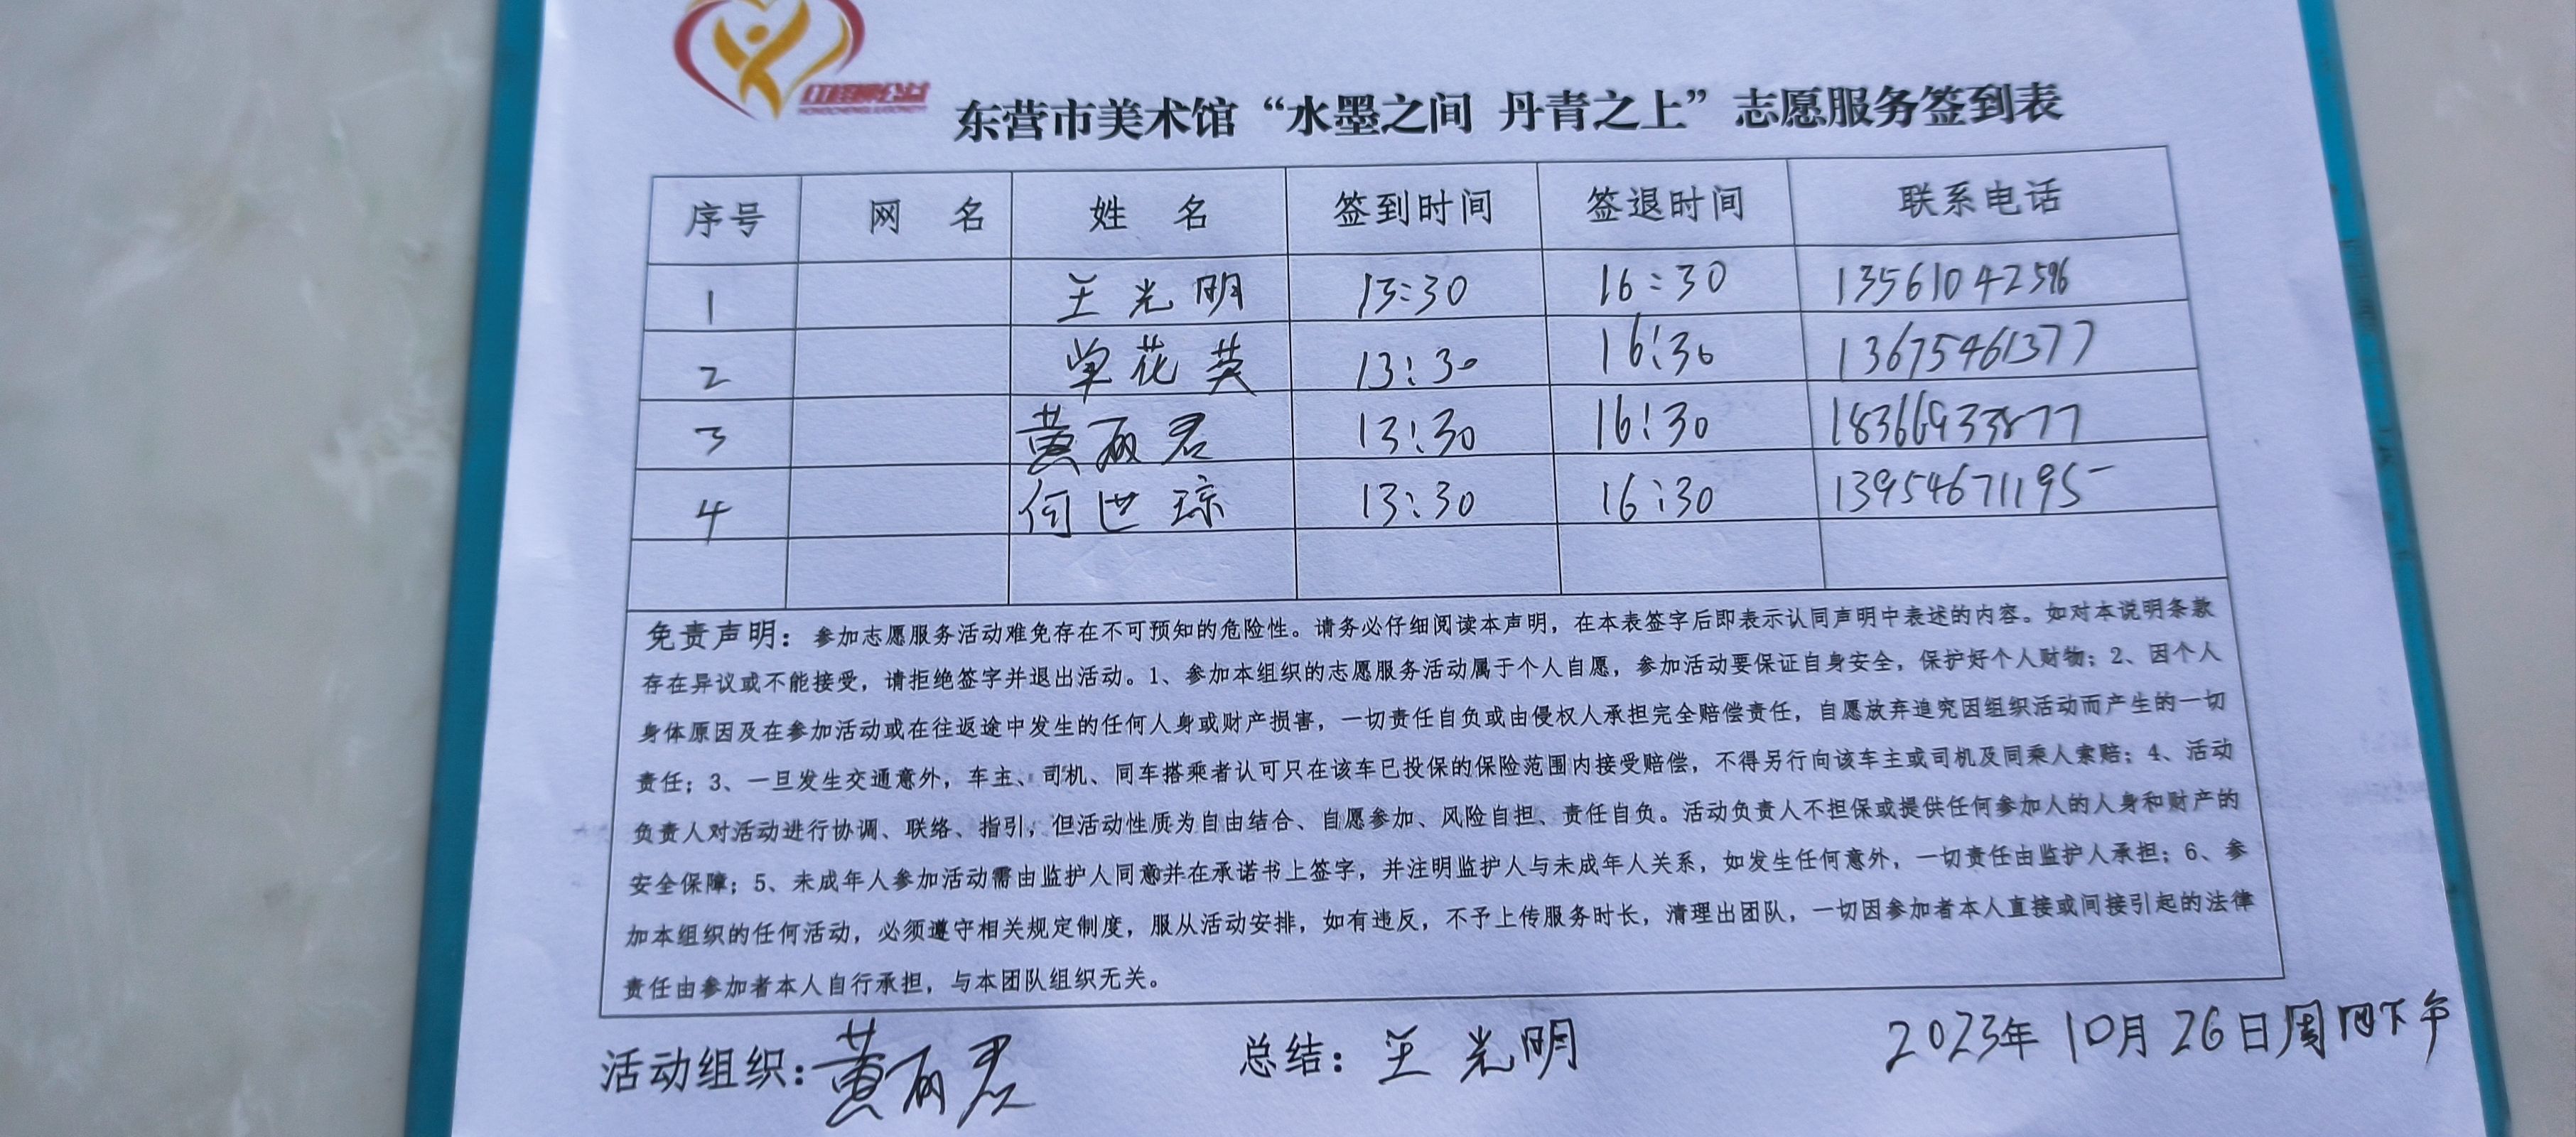 东营市美术馆“水墨之间 丹青之上”志愿服务签到表
序号 网 名 姓 名 签到时间 签退时间 联系电话
1 王光明 13:30 16:30 13561042596
2 单花英 13:30 16:30 13675461377
3 黄丽君 13:30 16:30 18366933877
4 何世琼 13:30 16:30 13954671195
免责声明：参加志愿服务活动难免存在不可预知的危险性。请务必仔细阅读本声明，在本表签字后即表示认同声明中表述的内容。如对本说明条款
存在异议或不能接受，请拒绝签字并退出活动。1、参加本组织的志愿服务活动属于个人自愿，参加活动要保证自身安全，保护好个人财物；2、因个人
身体原因及在参加活动或在往返途中发生的任何人身或财产损害，一切责任自负或由侵权人承担完全赔偿责任，自愿放弃追究因组织活动而产生的一切
责任；3、一旦发生交通意外，车主、司机、同车搭乘者认可只在该车已投保的保险范围内接受赔偿，不得另行向该车主或司机及同乘人索赔；4、活动
负责人对活动进行协调、联络、指引，但活动性质为自由结合、自愿参加、风险自担、责任自负。活动负责人不担保或提供任何参加人的人身和财产的
安全保障；5、未成年人参加活动需由监护人同意并在承诺书上签字，并注明监护人与未成年人关系，如发生任何意外，一切责任由监护人承担；6、参
加本组织的任何活动，必须遵守相关规定制度，服从活动安排，如有违反，不予上传服务时长，清理出团队，一切因参加者本人直接或间接引起的法律
责任由参加者本人自行承担，与本团队组织无关。
活动组织：黄丽君 总结：王光明 2023年10月26日周四下午